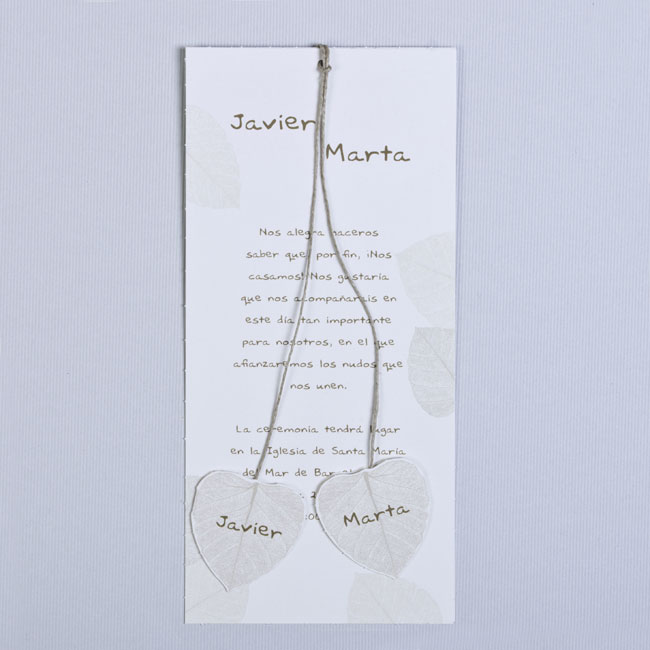 Javier
Marta
Nos alegra haceros
saber que, por fin, ¡Nos
casamos! Nos gustaría
que nos acompañarais en
este día tan importante
para nosotros, en el que
afianzaremos los nudos que
nos unen.
La ceremonia tendrá lugar
en la Iglesia de Santa María
del Mar de
Javier
Marta